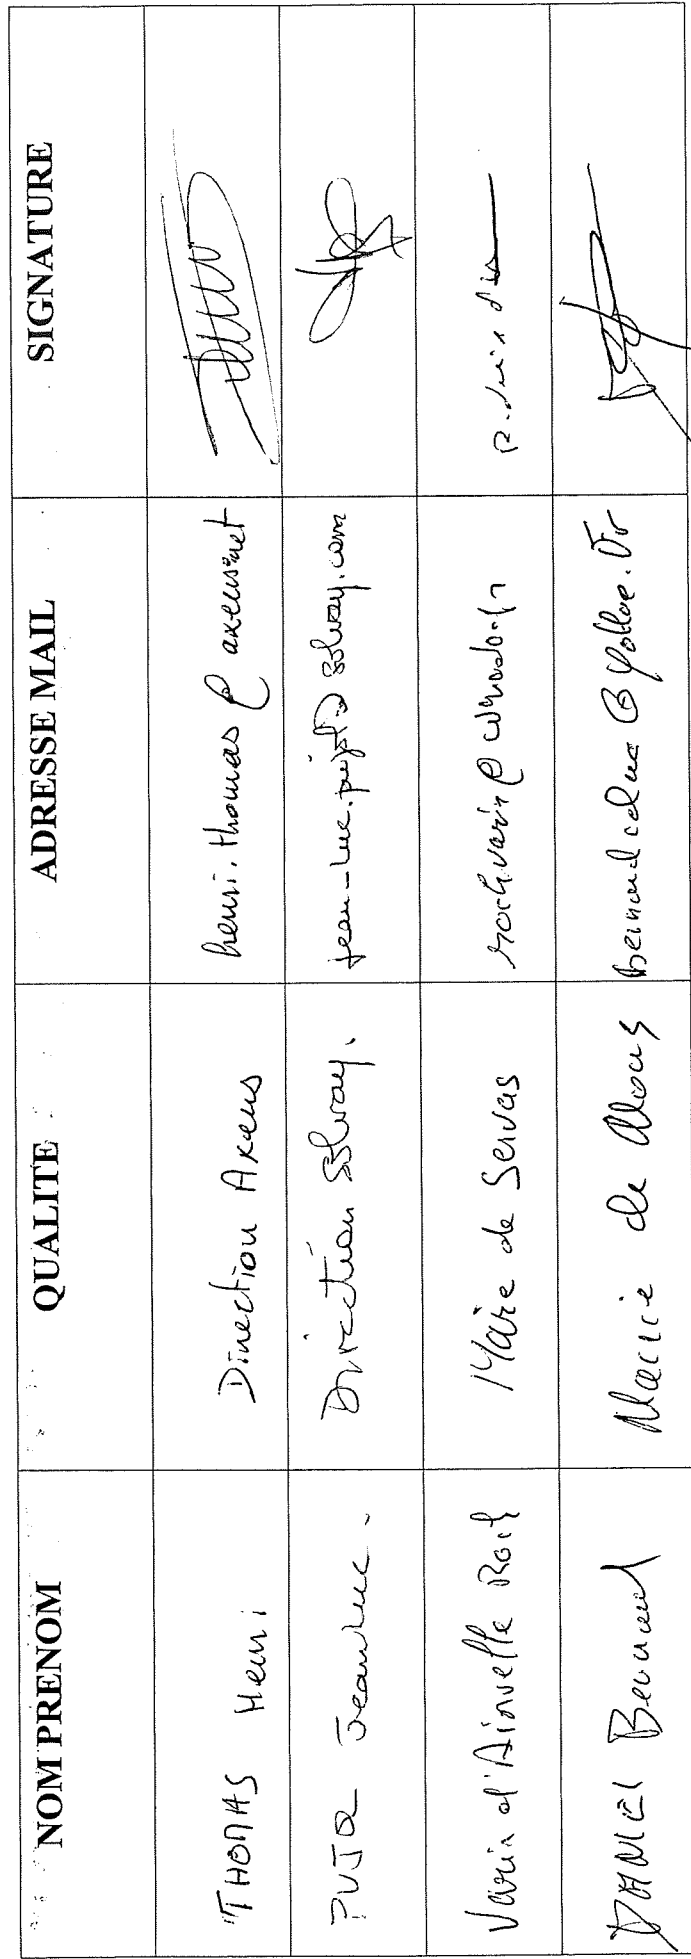 NOM PRENOM QUALITE ADRESSE MAIL SIGNATURE
THOMAS Henri Direction Axens henri.thomas@axens.net
PUJOL Jean Luc. Direction Solvay. jean-luc.pujol@solvay.com
Varin d'Ainvelle Roch Maire de Servas rochvarin@wanadoo.fr
DANIEL Bernard Mairie de Mons